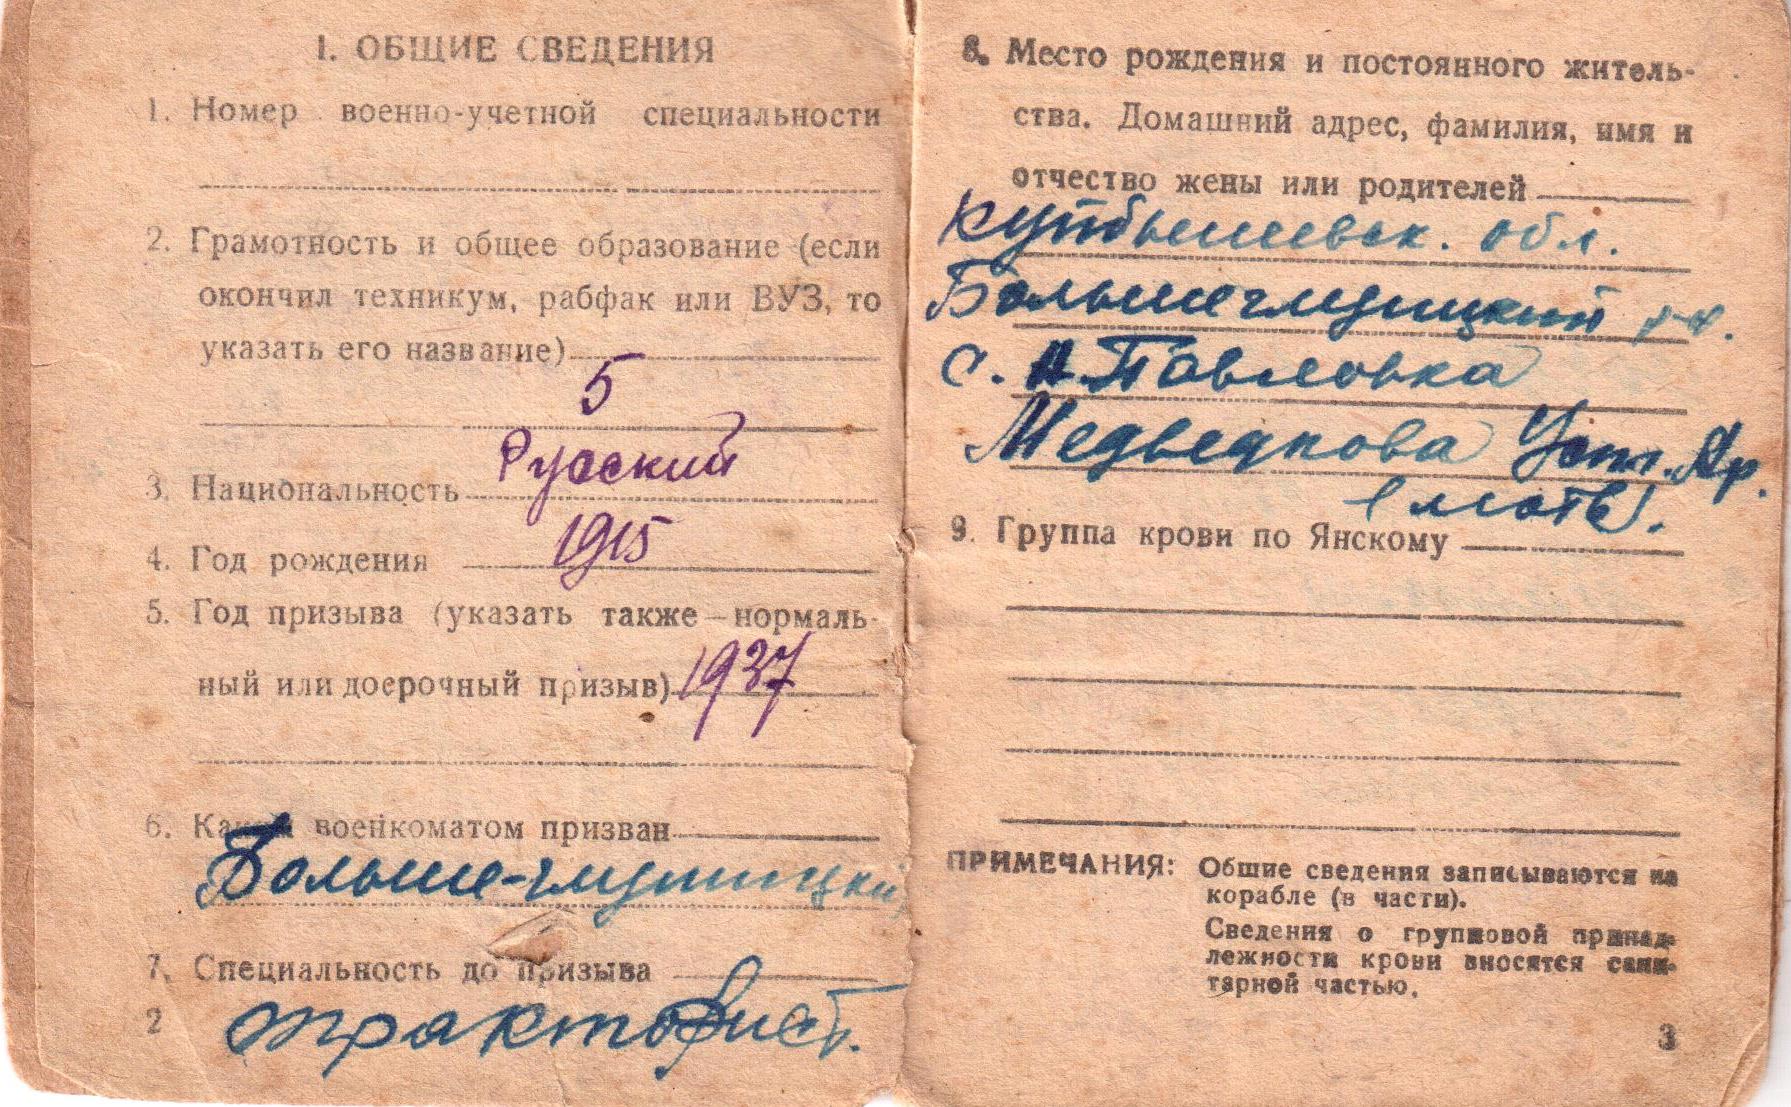 1. ОБЩИЕ СВЕДЕНИЯ
1. Номер военно-учетной специальности
2. Грамотность и общее образование (если
окончил техникум, рабфак или ВУЗ, то
указать его название)
5
3. Национальность Русский
4. Год рождения 1915
5. Год призыва (указать также нормаль-
ный или досрочный призыв) 1937
6. Каким военкоматом призван
Больше-глушицкий
7. Специальность до призыва
тракторист.
2
8. Место рождения и постоянного житель-
ства. Домашний адрес, фамилия, имя и
отчество жены или родителей
Куйбышевск. обл.
Большеглушицкий р-н.
с. Н. Павловка
Медведкова Уст. Яр.
(мать).
9. Группа крови по Янскому
ПРИМЕЧАНИЯ: Общие сведения записываются на
корабле (в части).
Сведения о групповой принад-
лежности крови вносятся сани-
тарной частью.
3